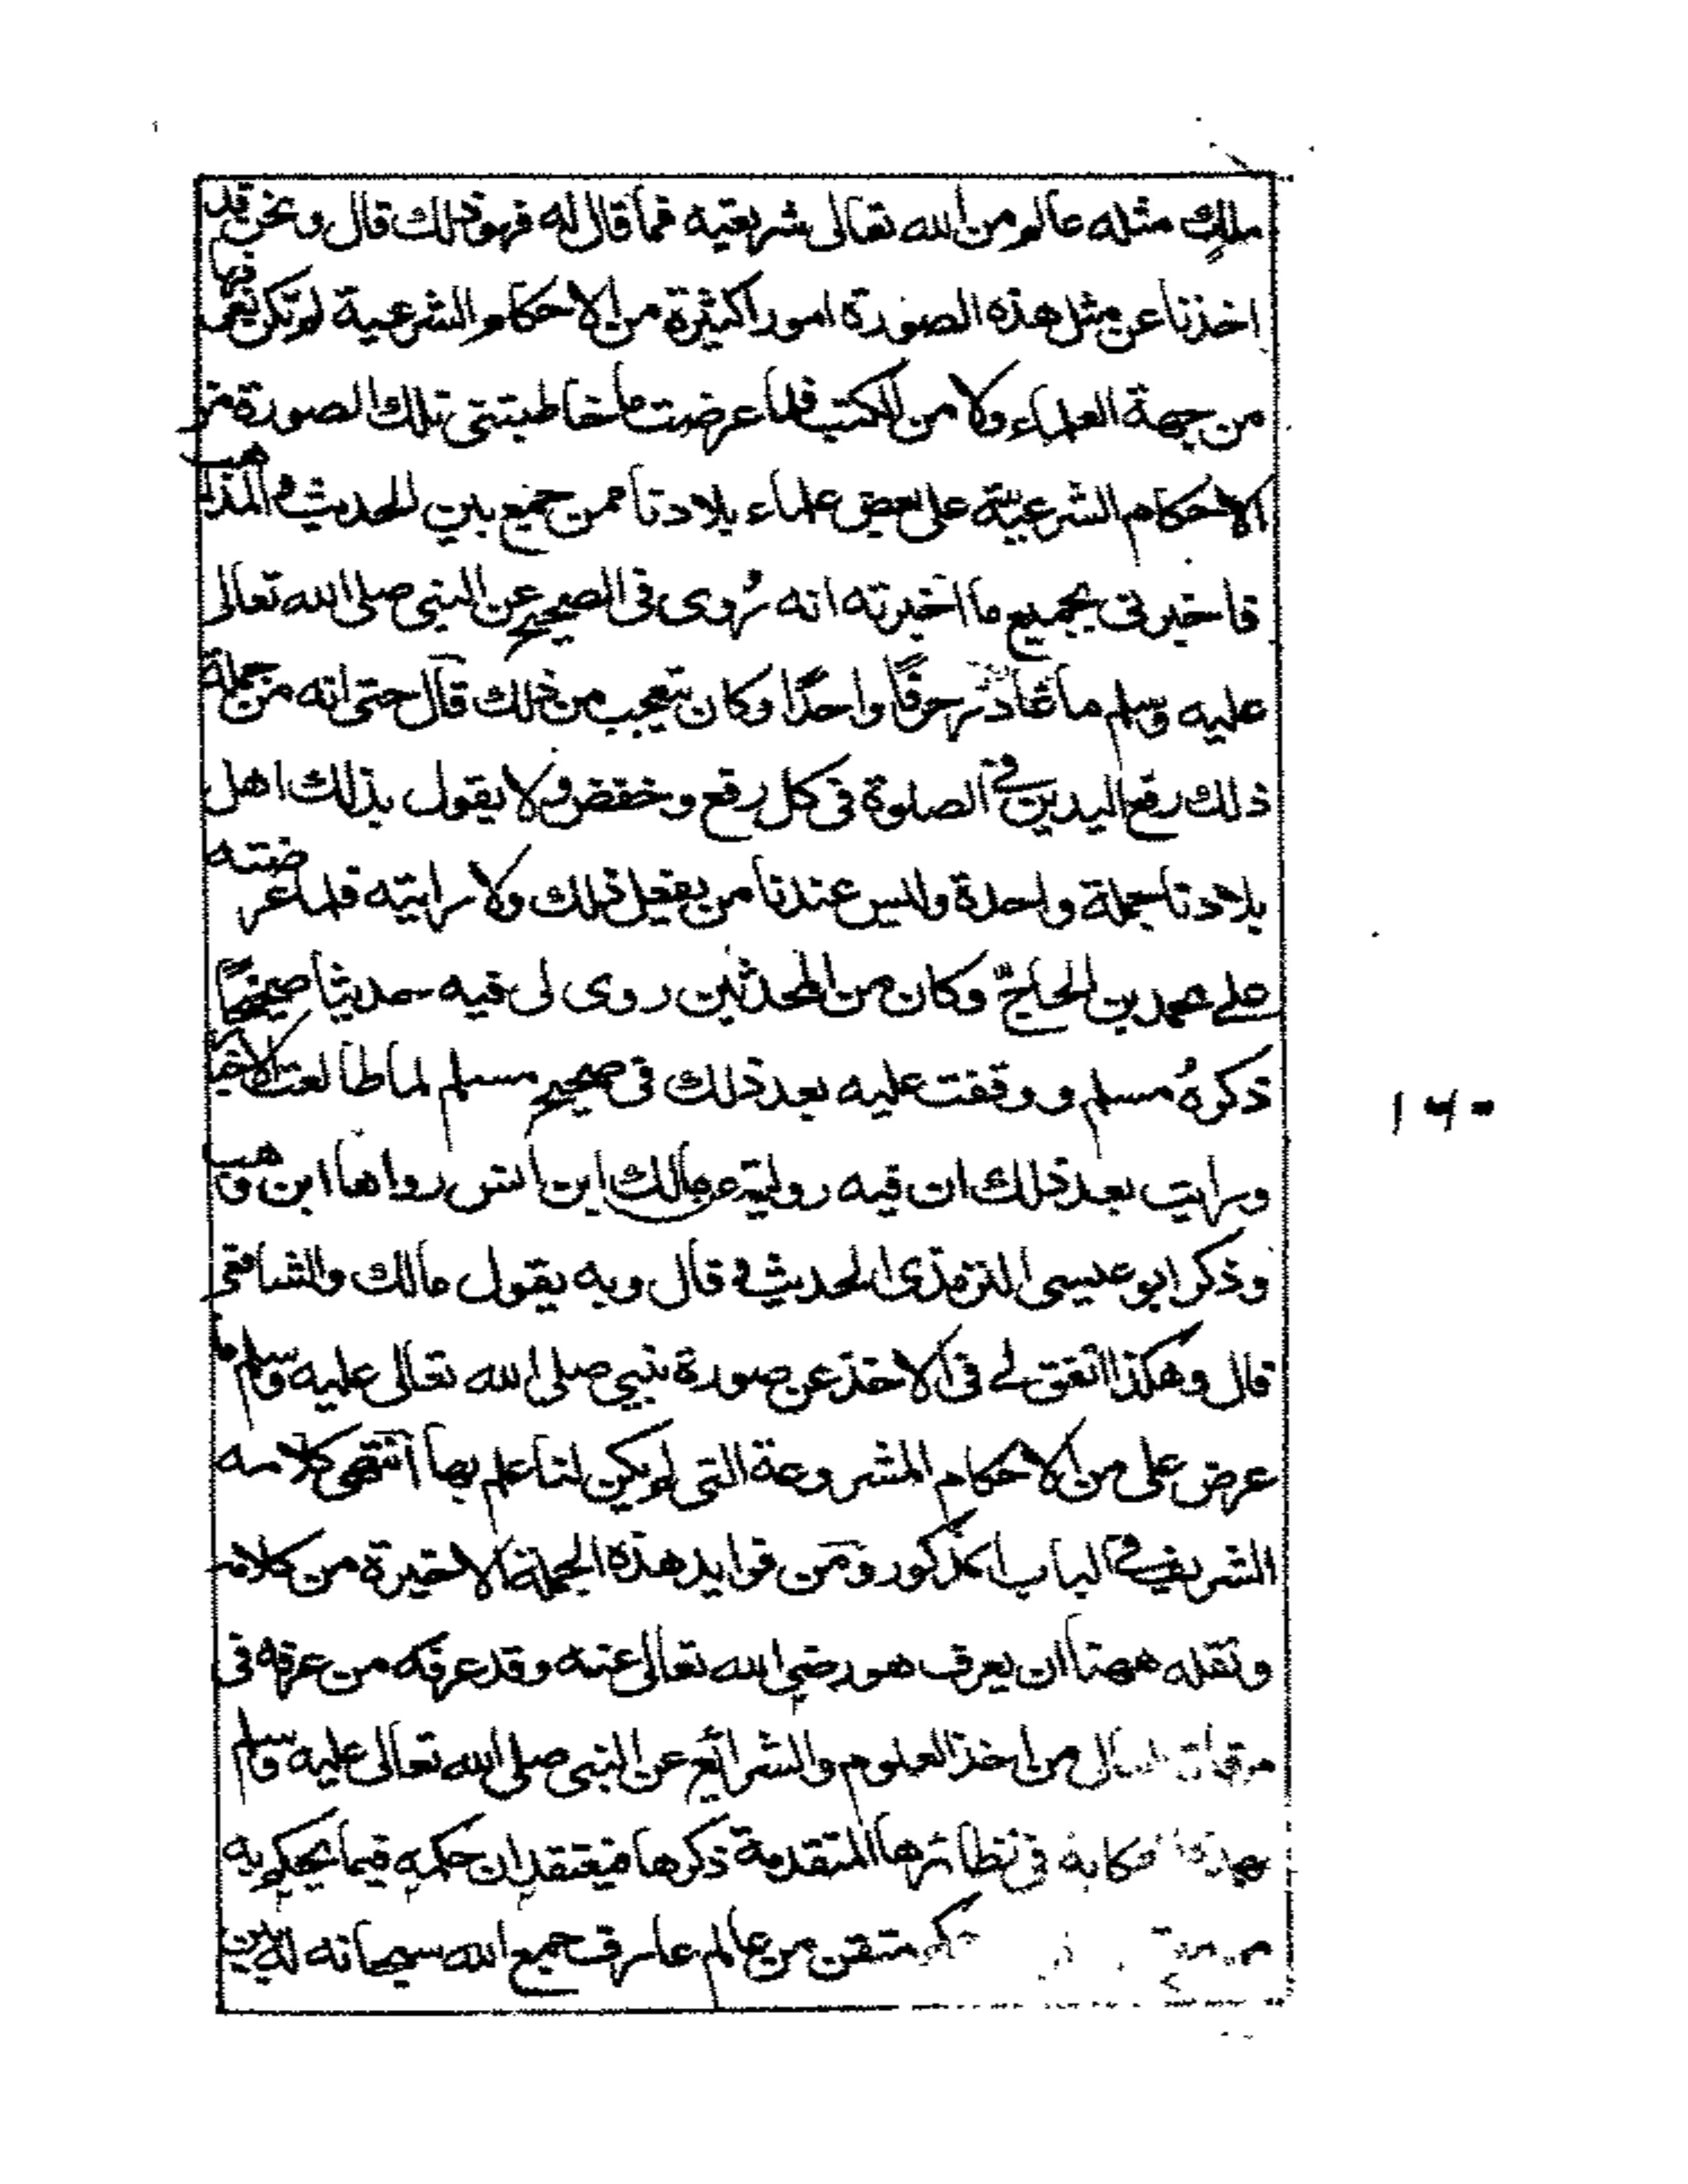 ملك مثله عالم من الله تعالى شريعتيه فما قال له فهو ذلك قال ونحن قد
اخذنا عن مثل هذه الصورة امورا كثيرة من الاحكام الشرعية لم نكن نعرفها
من جهة العلماء ولا من الكتب فلما عرضت ما خاطبتنى تلك الصورة من
الاحكام الشرعية على بعض علماء بلادنا ممن جمع بين الحديث والمذاهب
فاخبرنى بجميع ما اخبرته انه رُوى فى الصحيح عن النبى صلى الله تعالى
عليه وسلم ما غادر حرفًا واحدًا وكان يتعجب من ذلك قال حتى انه من جملة
ذلك رفع اليدين فى الصلوة فى كل رفع وخفض ولا يقول بذلك اهل
بلادنا جملة واحدة وليس عندنا من يفعل ذلك ولا رايته فلما عرضته
على محمد بن الحاجّ وكان من المحدثين روى لى فيه حديثا صحيحًا
ذكرهُ مسلم ووقفت عليه بعد ذلك فى صحيح مسلم لما طالعت الاخبار
ورايت بعد ذلك ان فيه رواية عن مالك ابن انس رواها ابن وهب
وذكر ابو عيسى الترمذى الحديث وقال وبه يقول مالك والشافعى
قال وهكذا اتفق لى فى الاخذ عن صورة نبيى صلى الله تعالى عليه وسلم ما
عرض على من الاحكام المشروعة التى لم يكن لنا علم بها انتهى كلامه
الشريف فى الباب المذكور ومن فوايد هذه الجملة الاخيرة من كلامه
ونقله ههنا ان يعرف هو رضى الله تعالى عنه وقد عرفه من عرفه فى
من اخذ العلوم والشرائع عن النبى صلى الله تعالى عليه وسلم
بهذه فى نظائرها المتقدمة ذكرها فيعتقد ان حكمه فيما يحكم به
متقن من عالم عارف جمع الله سبحانه له بين
١٦٠